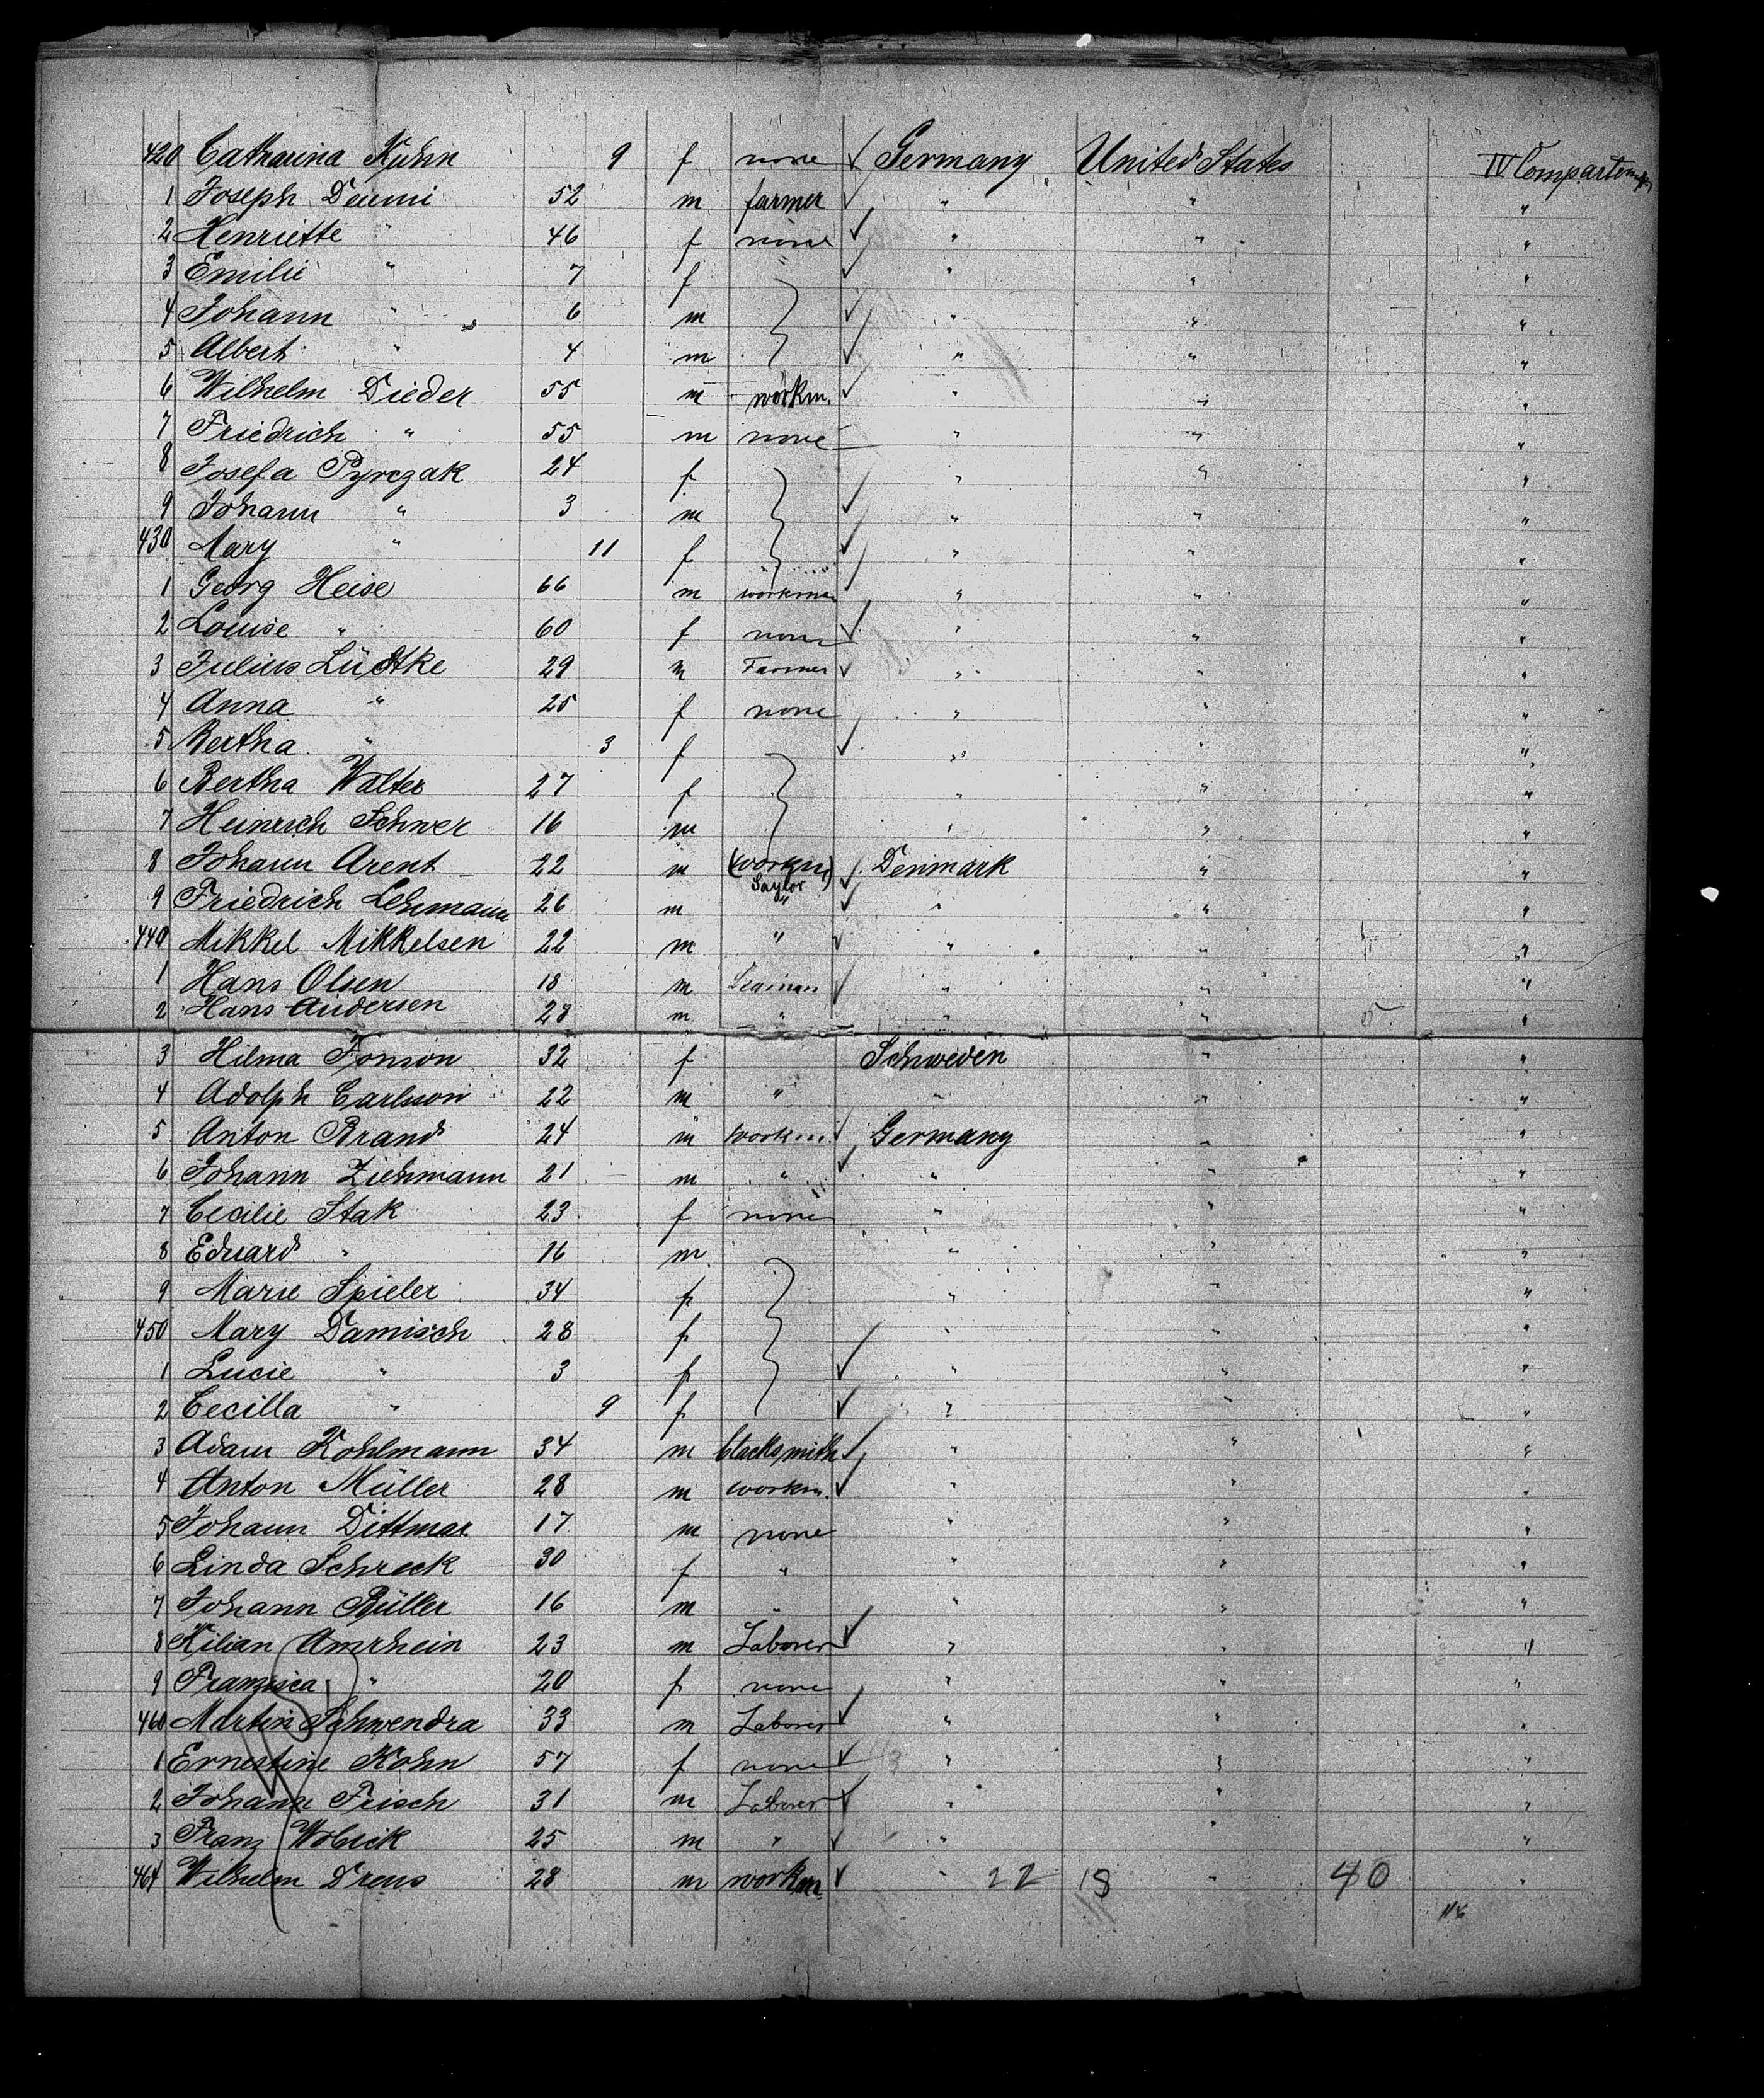 420 Catharina Kuhn 9 f none √ Germany United States IV Compartement
1 Joseph Deumi 52 m farmer √ " " "
2 Henriette " 46 f none √ " " "
3 Emilie " 7 f √ " " "
4 Johann " 6 m √ " " "
5 Albert " 4 m √ " " "
6 Wilhelm Dieder 55 m workm. √ " " "
7 Friedrich " 55 m none " " "
8 Josefa Pyrczak 24 f " " "
9 Johann " 3 m √ " " "
430 Mary " 11 f √ " " "
1 Georg Heise 66 m workman √ " " "
2 Louise " 60 f none √ " " "
3 Julius Lüdtke 29 m Farmer √ " " "
4 Anna " 25 f none " " "
5 Bertha " 3 f √ " " "
6 Bertha Walter 27 f " " "
7 Heinrich Schwer 16 m " " "
8 Johann Arent 22 m (workm) √ Denmark " "
Saylor
9 Friedrich Lehmann 26 m " √ " " "
440 Mikkel Mikkelsen 22 m " √ " " "
1 Hans Olsen 18 m Seaman √ " " "
2 Hans Andersen 28 m " " " "
3 Hilma Fonson 32 f Schweden " "
4 Adolph Carlsson 22 m " " " "
5 Anton Brand 24 m workm. √ Germany " "
6 Johann Ziehmann 21 m " √ " " "
7 Cecilie Stak 23 f none " " "
8 Eduard " 16 m " " "
9 Marie Spieler 34 f " " "
450 Mary Damisch 28 f " " "
1 Lucie " 3 f √ " " "
2 Cecilla " 9 f √ " " "
3 Adam Kohlmann 34 m blacksmith √ " " "
4 Anton Müller 28 m workm. √ " " "
5 Johann Dittmar 17 m none " " "
6 Linda Schreck 30 f " " " "
7 Johann Büller 16 m " " " "
8 Kilian Amrhein 23 m Laborer √ " " "
9 Franzisca " 20 f none " " "
460 Martin Schwendra 33 m Laborer √ " " "
1 Ernestine Kohn 57 f none √ " " "
2 Johann Frisch 31 m Laborer √ " " "
3 Franz Wobrik 25 m " √ " " "
464 Wilhelm Dreus 28 m workm. √ " 22 18 " 40 "